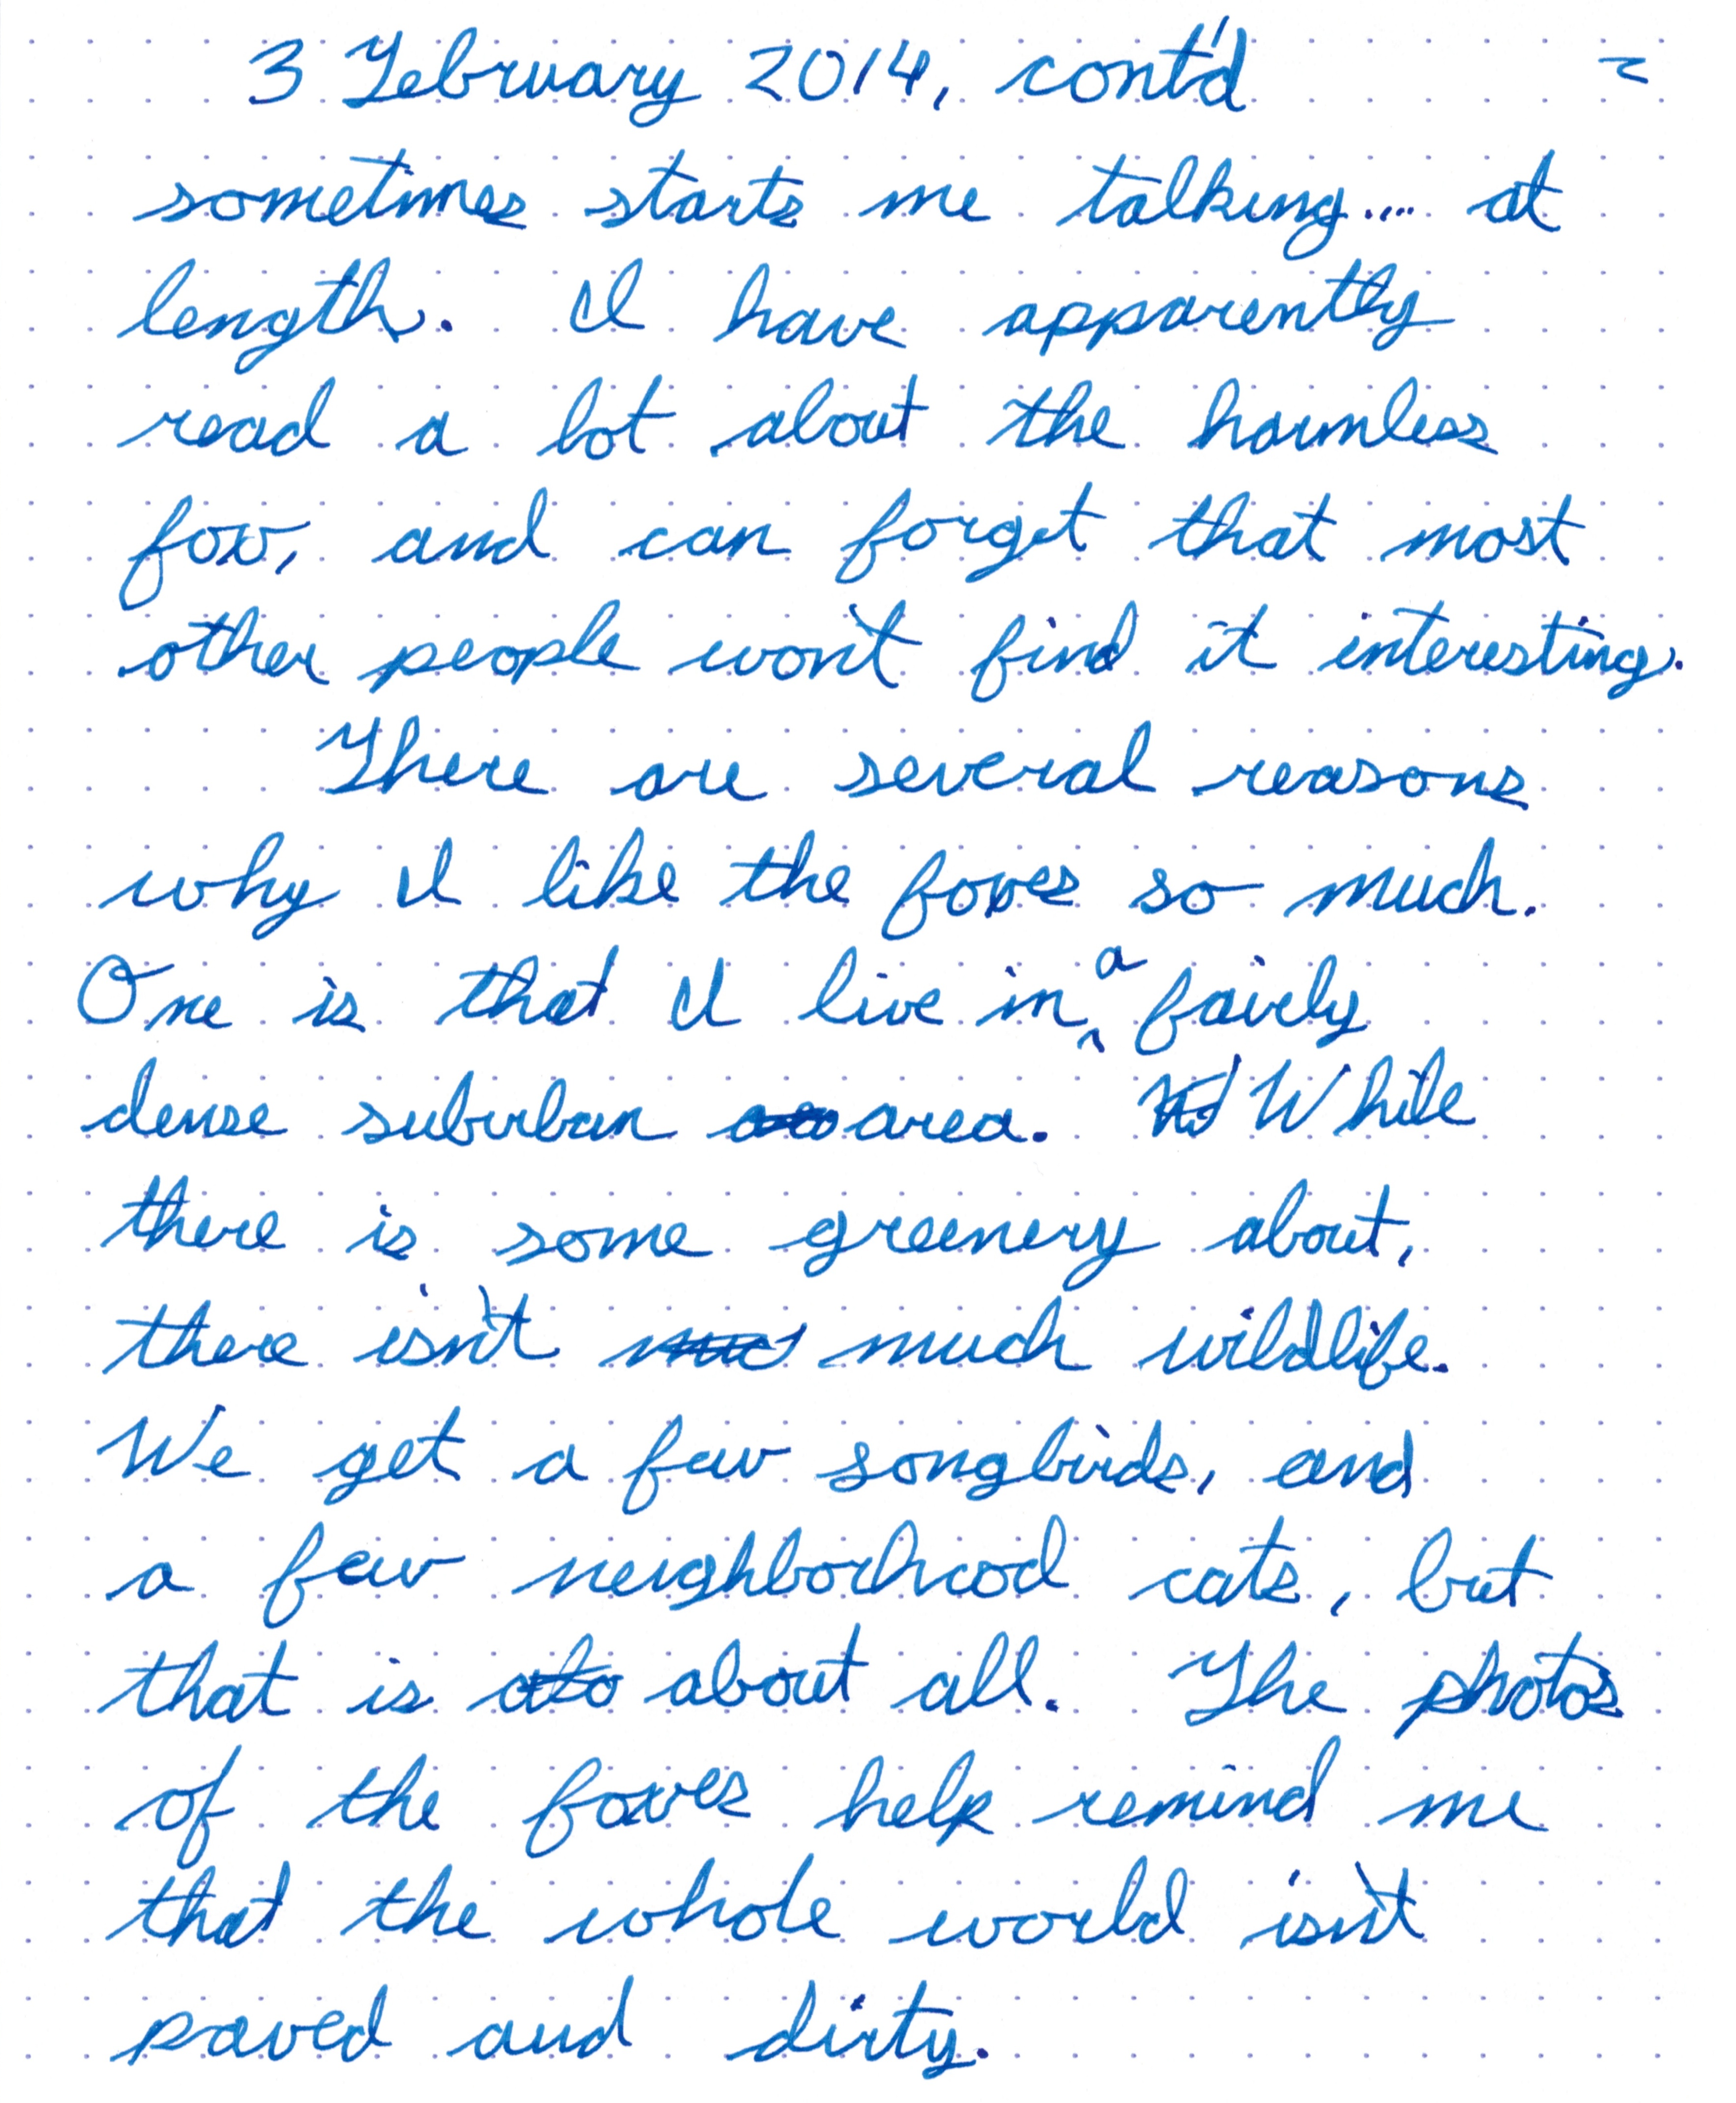 3 February 2014, cont'd 2
sometimes starts me talking.... at
length. I have apparently
read a lot about the harmless
fox, and can forget that most
other people won't find it interesting.
There are several reasons
why I like the foxes so much.
One is that I live in a fairly
dense suburban area. While
there is some greenery about,
there isn't much wildlife.
We get a few songbirds, and
a few neighborhood cats, but
that is about all. The photos
of the foxes help remind me
that the whole world isn't
paved and dirty.